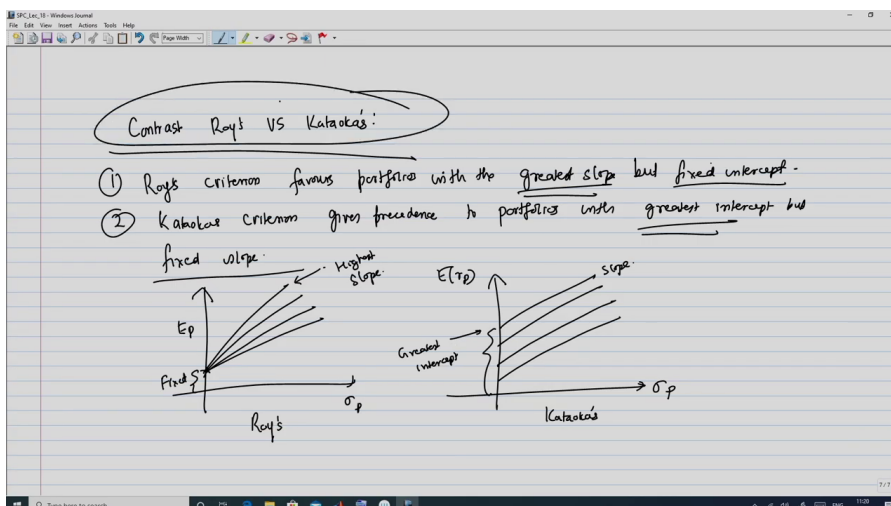 SPC_Lec_18 - Windows Journal
File Edit View Insert Actions Tools Help
Page Width
Contrast Roy's VS Kataoka's:
① Roy's criterion favours portfolios with the greatest slope but fixed intercept.
② Kataokas criterion gives precedence to portfolios with greatest intercept but
fixed slope.
Highest
Slope.
Ep
Fixed
σp
Roy's
E(rp)
slope.
Greatest
intercept
σp
Kataoka's
7/7
Type here to search
ENG
11:20